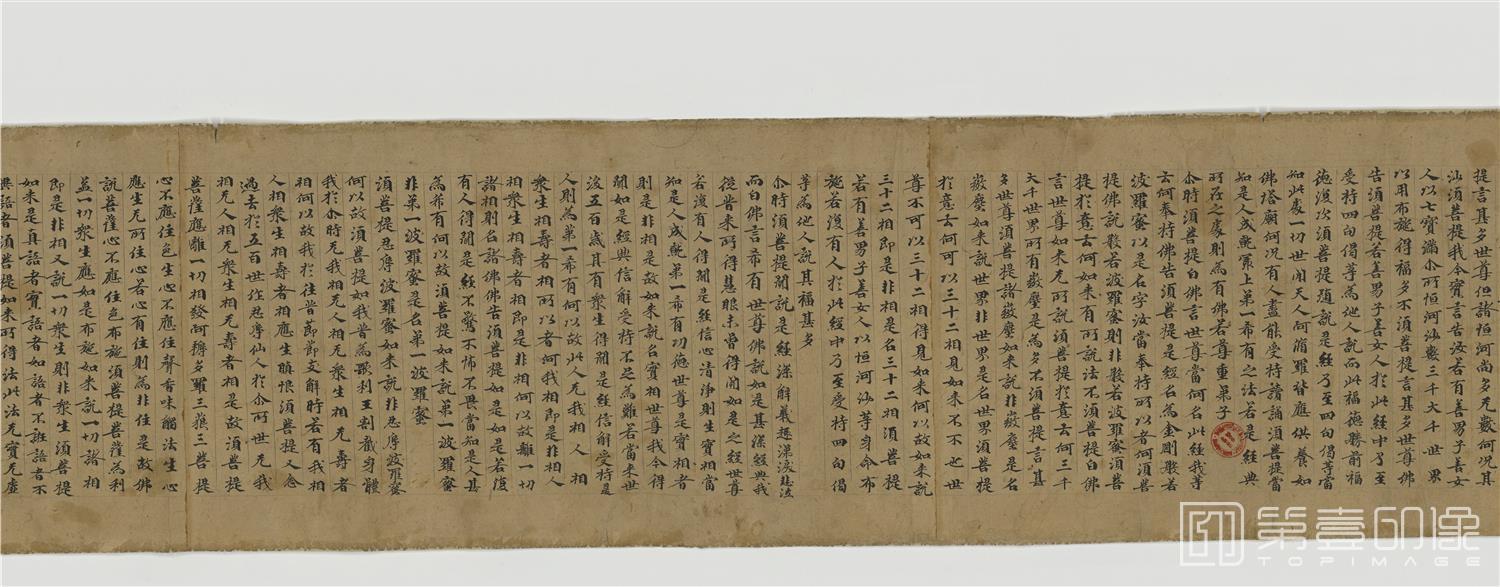 提言甚多世尊但諸恒河尚多无數何況其
沙須菩提我今實言告汝若有善男子善女
人以七寶滿尒所恒河沙數三千大千世界
以用布施得福多不須菩提言甚多世尊佛
告須菩提若善男子善女人於此經中乃至
受持四句偈等為他人說而此福德勝前福
德復次須菩提隨說是經乃至四句偈等當
知此處一切世間天人阿脩羅皆應供養如
佛塔廟何況有人盡能受持讀誦須菩提當
知是人成就冣上第一希有之法若是經典
所在之處則為有佛若尊重弟子
尒時須菩提白佛言世尊當何名此經我等
云何奉持佛告須菩提是經名為金剛般若
波羅蜜以是名字汝當奉持所以者何須菩
提佛說般若波羅蜜則非般若波羅蜜須菩
提於意云何如來有所說法不須菩提白佛
言世尊如來无所說須菩提於意云何三千
大千世界所有微塵是為多不須菩提言甚
多世尊須菩提諸微塵如來說非微塵是名
微塵如來說世界非世界是名世界須菩提
於意云何可以三十二相見如來不不也世
尊不可以三十二相得見如來何以故如來說
三十二相即是非相是名三十二相須菩提
若有善男子善女人以恒河沙等身命布
施若復有人於此經中乃至受持四句偈
等為他人說其福甚多
尒時須菩提聞說是經深解義趣涕淚悲泣
而白佛言希有世尊佛說如是甚深經典我
從昔來所得慧眼未曾得聞如是之經世尊
若復有人得聞是經信心清淨則生實相當
知是人成就第一希有功德世尊是實相者
則是非相是故如來說名實相世尊我今得
聞如是經典信解受持不足為難若當來世
後五百歲其有眾生得聞是經信解受持是
人則為第一希有何以故此人无我相人相
眾生相壽者相所以者何我相即是非相人
相眾生相壽者相即是非相何以故離一切
諸相則名諸佛佛告須菩提如是如是若復
有人得聞是經不驚不怖不畏當知是人甚
為希有何以故須菩提如來說第一波羅蜜
非第一波羅蜜是名第一波羅蜜
須菩提忍辱波羅蜜如來說非忍辱波羅蜜
何以故須菩提如我昔為歌利王割截身體
我於尒時无我相无人相无眾生相无壽者
相何以故我於往昔節節支解時若有我相
人相眾生相壽者相應生瞋恨須菩提又念
過去於五百世作忍辱仙人於尒所世无我
相无人相无眾生相无壽者相是故須菩提
菩薩應離一切相發阿耨多羅三藐三菩提
心不應住色生心不應住聲香味觸法生心
應生无所住心若心有住則為非住是故佛
說菩薩心不應住色布施須菩提菩薩為利
益一切眾生應如是布施如來說一切諸相
即是非相又說一切眾生則非眾生須菩提
如來是真語者實語者如語者不誑語者不
異語者須菩提如來所得法此法无實无虛
第壹印像
TOPIMAGE